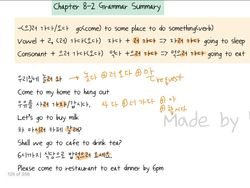 Chapter 8-2 Grammar Summary
-(으)러 가다/오다 go(come) to some place to do something(verb)
Vowel + 러 (ㄹ) 가다(오다) 자다 + 러 가다 => 자러 가다 going to sleep
Consonant + 으러 가다(오다) 먹다 + 으러 가다 => 먹으러 가다 going to eat
우리집에 놀러 와 → 놀다 ⊕ 러 오다 ⊕ 아
request
Come to my home to hang out
우유를 사러 가자/갑시다. 사다 ⊕ 러 가다 ⊕ 자
⊕ ㅂ시다
Let's go to buy milk
차 마시러 카페 갈래?
Shall we go to cafe to drink tea?
6시까지 식당으로 밥먹으러 오세요.
Please come to restaurant to eat dinner by 6pm
Made by